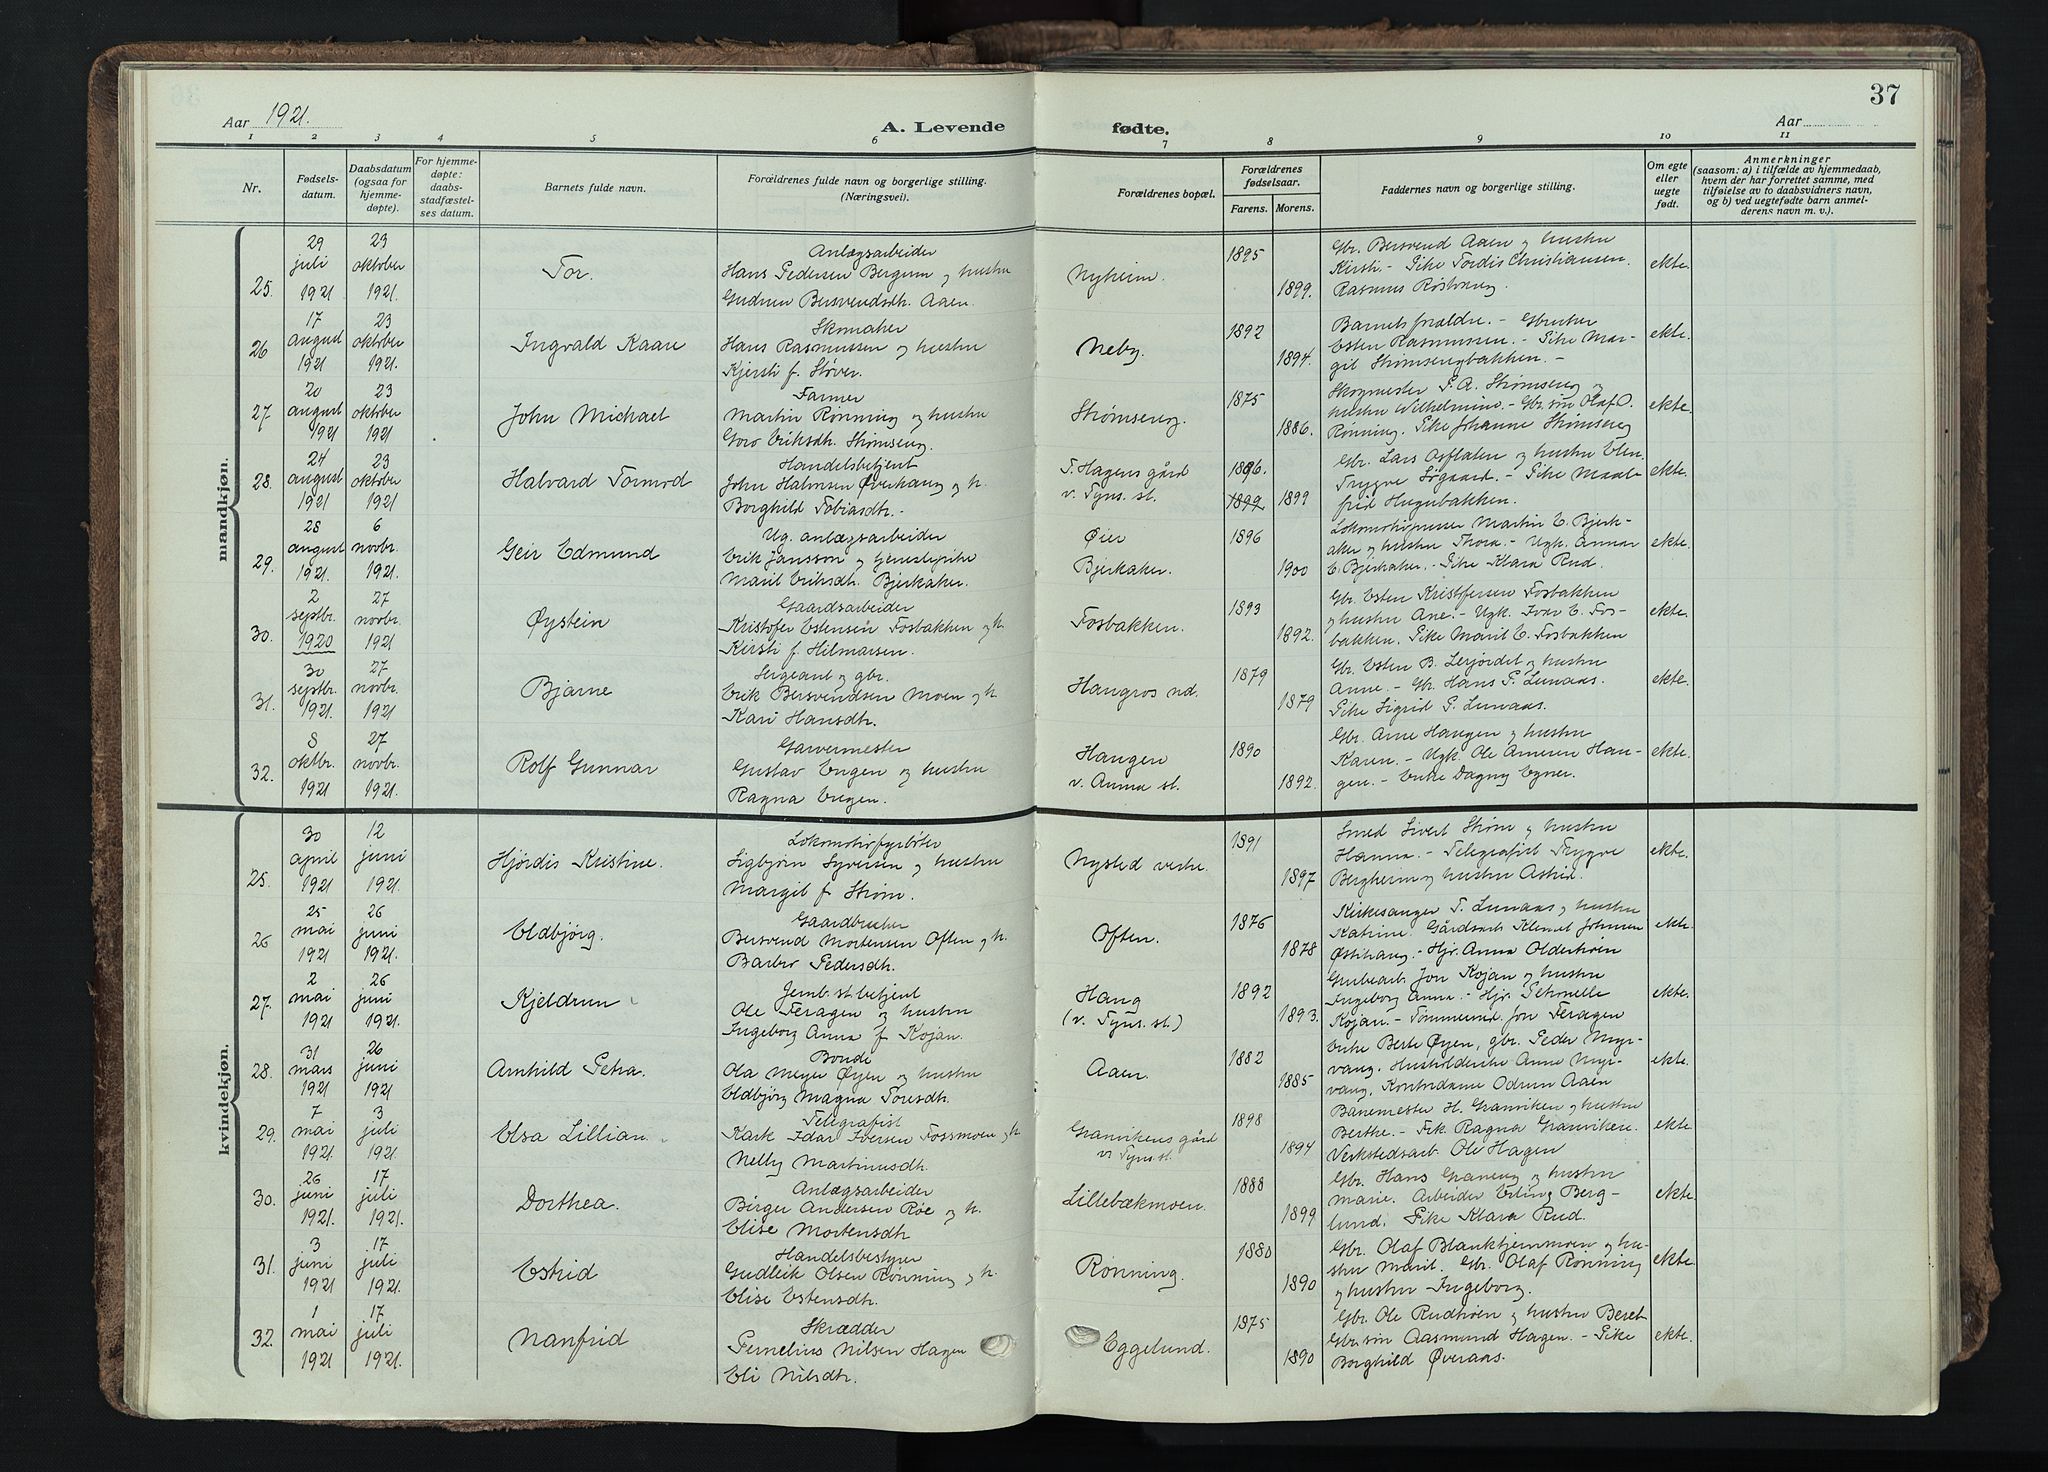 37
Aar 1921.
A. Levende fødte.
Aar
1 2 3 4 5 6 7 8 9 10 11
Nr.
Fødsels-
datum.
Daabsdatum
(ogsaa for
hjemme-
døpte).
For hjemme-
døpte:
daabs-
stadfæstel-
ses datum.
Barnets fulde navn.
Forældrenes fulde navn og borgerlige stilling.
(Næringsvei).
Forældrenes bopæl.
Forældrenes
fødselsaar.
Farens. Morens.
Faddernes navn og borgerlige stilling.
Om egte
eller
uegte
født.
Anmerkninger
(saasom: a) i tilfælde av hjemmedaab,
hvem der har forrettet samme, med
tilføielse av to daabsvidners navn,
og b) ved uegtefødte barn anmel-
derens navn m. v.).
mandkjøn.
29 23 Anlægsarbeider 1895 Gbr. Bersvend Aaen og hustru
juli oktober Tor. Hans Pedersen Bergum og hustru Nyheim. Kirsti - Pike Tordis Christiansen. ekte.
25. 1921 1921. Gudrun Bersvendsdtr. Aaen. 1899. Rasmus
17 23 Skomaker 1892 Barnets forældre. - Gbruker
26 august oktober Ingvald Kaare Hans Rasmussen og hustru Neby. Esten Rasmussen. - Pike Mar- ekte.
1921 1921. Kjersti f. Støver. 1894. git Strømsengbakken. -
20 23 Farmer 1875 Skogmester P. A. Strømseng og
27. august oktober John Michael Martin Rønning og hustru Strømseng. hustru Wilhelmine. - Gbr. søn Olaf O. ekte.
1921 1921 Goro Eriksdtr. Strømseng. 1886. Rønning. Pike Johanne Strømseng
24 23 Handelsbetjent T. Hagens gård 1896. Gbr. Lars Osflaten og hustru Elen.
28. august oktober Halvard Tormod John Halvorsen Øverhaug og h. v. Tyns. st. 1899 1899 Trygve Søgaard. - Pike Maal- ekte.
1921 1921 Borghild Tobiasdtr. - frid Haugebakken.
28 6 Ug. anlægsarbeider Øier 1896 Lokomotivpusser Martin E. Bjerk-
29. august novbr. Geir Edmund Erik Jansson og Bjerkaker. aker og hustru Thora. - Ugk. Annar ekte.
1921. 1921. Marit Eriksdtr. Bjerkaker. 1900 E. Bjerkaker. - Pike Klara Rud.
2 27 Gaardsarbeider 1893 Gbr. Esten Kristoffersen Fosbakken
30. septbr. novbr. Øystein Kristofer Estensen Fosbakken og h. Fosbakken. og hustru Ane. - Ugk. Ivar E. Fos- ekte.
1920 1921 Kirsti f. Hilmarsen. 1892. bakken. Pike Marit E. Fosbakken
30 27 Sergeant og gbr. 1879 Gbr. Esten B. Lerjordet og hustru
31. septbr. novbr. Bjarne Erik Bersvendsen Moen og h. Haugros nd. Anne. - Gbr. Hans P. Lunaas. ekte.
1921. 1921 Kari Hansdtr. 1879 Pike Sigrid P. Lunaas.
8 27 Garvermester Haugen 1890 Gbr. Arne Haugen og hustru
32. oktbr. novbr. Rolf Gunnar Gustav Engen og hustru v. Auma st. Karen. - Ugk. Ole Arnesen Hau- ekte.
1921 1921. Ragna Engen. 1892. gen. - Enke Dagny Egner.
kvindekjøn.
30 12 Lokomotivfyrbøter 1891 Smed Sivert Strøm og hustru
25. april juni Hjørdis Kristine. Sigbjørn Syversen og hustru Nysted vestre. Hanna. - Telegrafist Trygve ekte.
1921 1921. Margit f. Strøm. 1897 Bergheim og hustru Astrid.
25 26 Gaardbruker 1876 Kirkesanger T. Lunaas og hustru
26 mai juni Eldbjørg. Bersvend Mortensen Often og h. Often. Katrine. Gårdsarb. Klemet Johnsen ekte.
1921 1921. Barbro Pedersdtr. 1878 Østihaug. - Hjr. Anna Olderhøen
2 26 Jernb. st. betjent Haug 1892 Grubearb. Jon Kojan og hustru
27. mai juni Kjeldrun Ole Feragen og hustru (v. Tyns. st.) Ingeborg Anna. - Hjr. Petronelle ekte.
1921 1921. Ingeborg Anna f. Kojan. 1893. Kojan. - Tømmermd. Jon Feragen
31 26 Bonde 1882 Enke Berte Øyen, gbr. Peder Myr-
28. mars juni Arnhild Petra. Ola Meyer Øyen og hustru Aaen. vang. Husholderske Anne Myr- ekte.
1921 1921 Eldbjørg Magna Toresdtr. 1885 vang. Kontordame Odrun Aaen
7 3 Telegrafist 1898 Banemester H. Granviken og hustru
29. mai juli Elsa Lillian Kark Idar Iversen Fossmoen og h. Granvikens gård Berthe. - Frk. Ragna Granviken. ekte.
1921. 1921. Nelly Martinusdtr. v. Tyns. st. 1894 Verkstedsarb. Ole Hagen
26 17 Anlægsarbeider 1888 Gbr. Hans Graneng og hustru
30. juni juli Dorthea. Birger Andersen Røe og h. Lillebækmoen. Marie. Arbeider Erling Berg- ekte
1921. 1921. Elise Mortensdtr. 1899 lund. Pike Klara Rud.
3 17 Handelsbestyrer 1880 Gbr. Olaf Blankhjemmoen og hu-
31. juni juli Estrid Gudleik Olsen Rønning og h. Rønning. stru Marit. Gbr. Olaf Rønning ekte.
1921 1921 Elise Estensdtr. 1890 og hustru Ingeborg.
1 17 Skrædder 1875 Gbr. Ole Rudhøen og hustru Beret
32. mai juli Nanfrid Pernelius Nilsen Hagen Eggelund. Gbr. søn Aasmund Hagen. - Pike ekte.
1921 1921. Eli Nilsdtr. 1890 Borghild Øveraas.